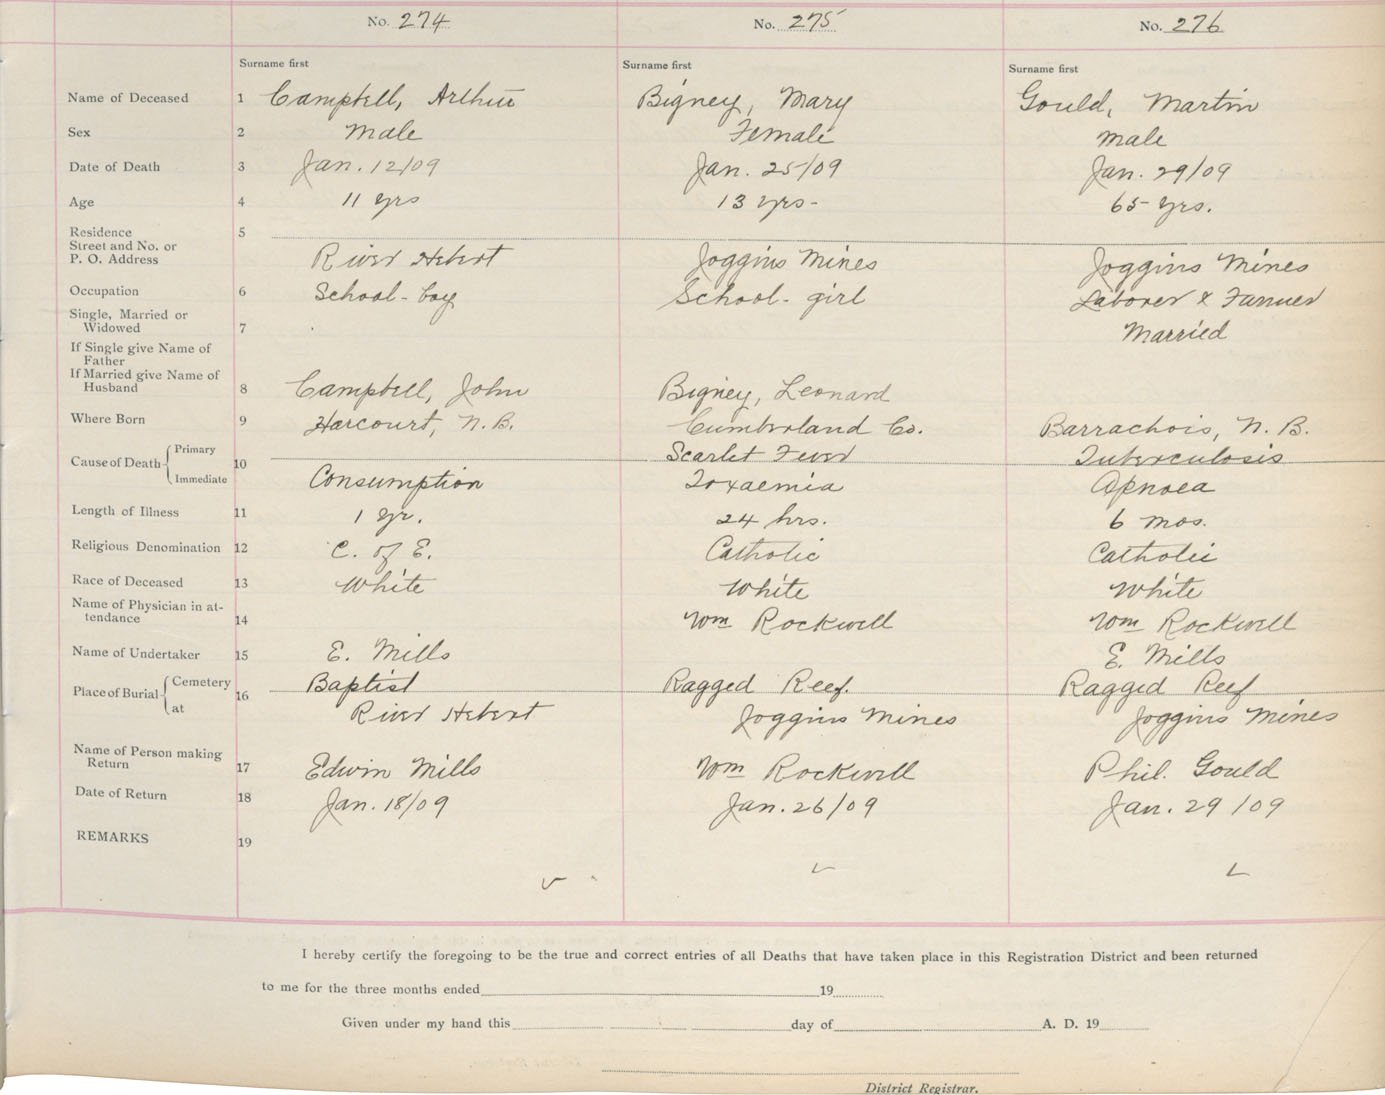 No. 274 No. 275 No. 276
Surname first Surname first Surname first
Name of Deceased 1 Campbell, Arthur Bigney, Mary Gould, Martin
Sex 2 Male Female Male
Date of Death 3 Jan. 12/09 Jan. 25/09 Jan. 29/09
Age 4 11 yrs 13 yrs- 65 yrs.
Residence 5
Street and No. or
P. O. Address River Hebert Joggins Mines Joggins Mines
Occupation 6 School-boy School-girl Laborer & Farmer
Single, Married or
Widowed 7 Married
If Single give Name of
Father
If Married give Name of
Husband 8 Campbell, John Bigney, Leonard
Where Born 9 Harcourt, N.B. Cumberland Co. Barrachois, N.B.
Cause of Death Primary 10 Scarlet Fever Tuberculosis
Immediate Consumption Toxaemia Apnoea
Length of Illness 11 1 yr. 24 hrs. 6 mos.
Religious Denomination 12 C. of E. Catholic Catholic
Race of Deceased 13 White White White
Name of Physician in at-
tendance 14 Wm Rockwell Wm Rockwell
Name of Undertaker 15 E. Mills E. Mills
Place of Burial Cemetery 16 Baptist Ragged Reef. Ragged Reef
at River Hebert Joggins Mines Joggins Mines
Name of Person making
Return 17 Edwin Mills Wm Rockwell Phil. Gould
Date of Return 18 Jan. 18/09 Jan. 26/09 Jan. 29/09
REMARKS 19
I hereby certify the foregoing to be the true and correct entries of all Deaths that have taken place in this Registration District and been returned
to me for the three months ended 19
Given under my hand this day of A. D. 19
District Registrar.